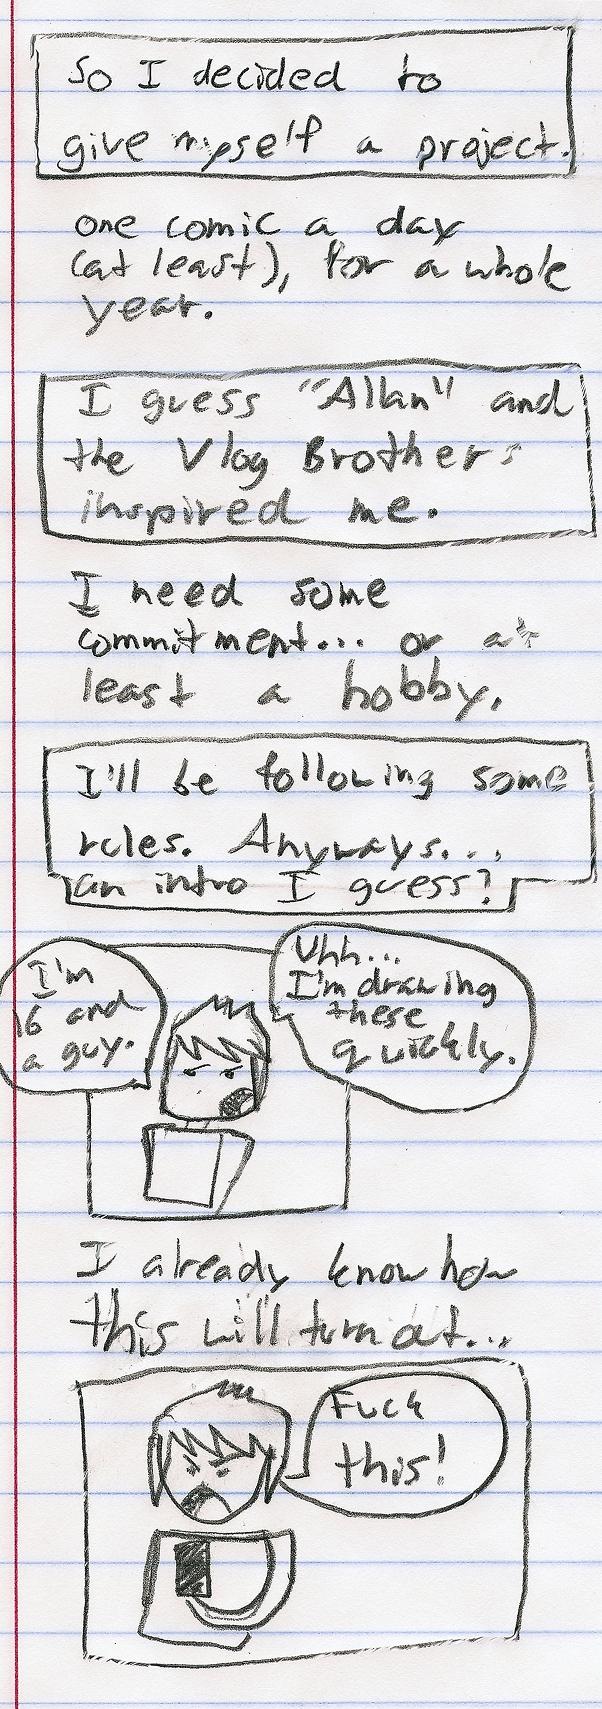 So I decided to
give myself a project.
one comic a day
(at least), for a whole
year.
I guess "Allan" and
the Vlog Brothers
inspired me.
I need some
commitment... or at
least a hobby.
I'll be following some
rules. Anyways...
an intro I guess?
I'm
16 and
a guy.
Uhh...
I'm drawing
these
quickly.
I already know how
this will turn out...
Fuck
this!